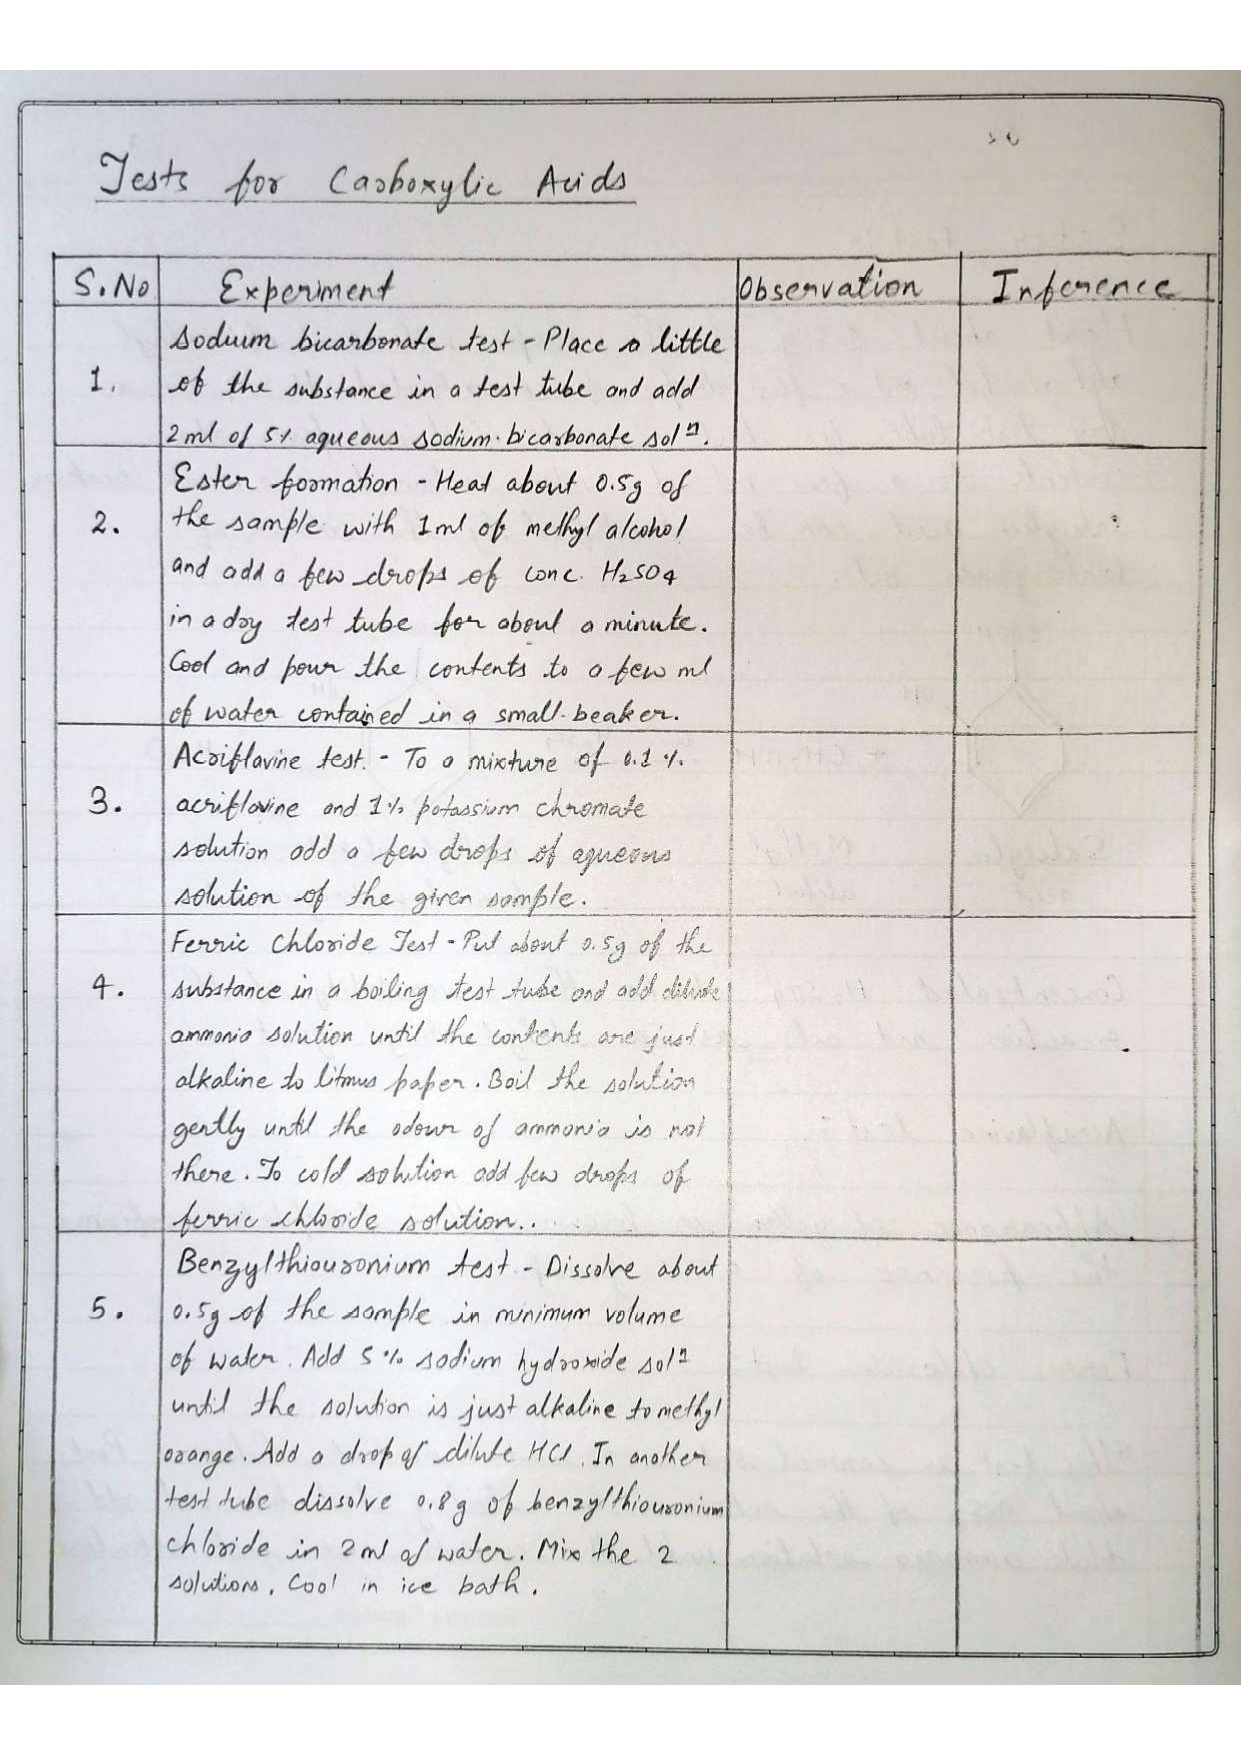 Tests for Carboxylic Acids
S.No Experiment Observation Inference
1.
Sodium bicarbonate test - Place a little
of the substance in a test tube and add
2ml of 5% aqueous sodium bicarbonate solⁿ.
2.
Ester formation - Heat about 0.5g of
the sample with 1ml of methyl alcohol
and add a few drops of conc. H₂SO₄
in a dry test tube for about a minute.
Cool and pour the contents to a few ml
of water contained in a small beaker.
3.
Acriflavine test. - To a mixture of 0.1%
acriflavine and 1% potassium chromate
solution add a few drops of aqueous
solution of the given sample.
4.
Ferric Chloride Test - Put about 0.5g of the
substance in a boiling test tube and add dilute
ammonia solution until the contents are just
alkaline to litmus paper. Boil the solution
gently until the odour of ammonia is not
there. To cold solution add few drops of
ferric chloride solution..
5.
Benzylthiouronium test - Dissolve about
0.5g of the sample in minimum volume
of water. Add 5% sodium hydroxide solⁿ
until the solution is just alkaline to methyl
orange. Add a drop of dilute HCl. In another
test tube dissolve 0.8g of benzylthiouronium
chloride in 2ml of water. Mix the 2
solutions. Cool in ice bath.